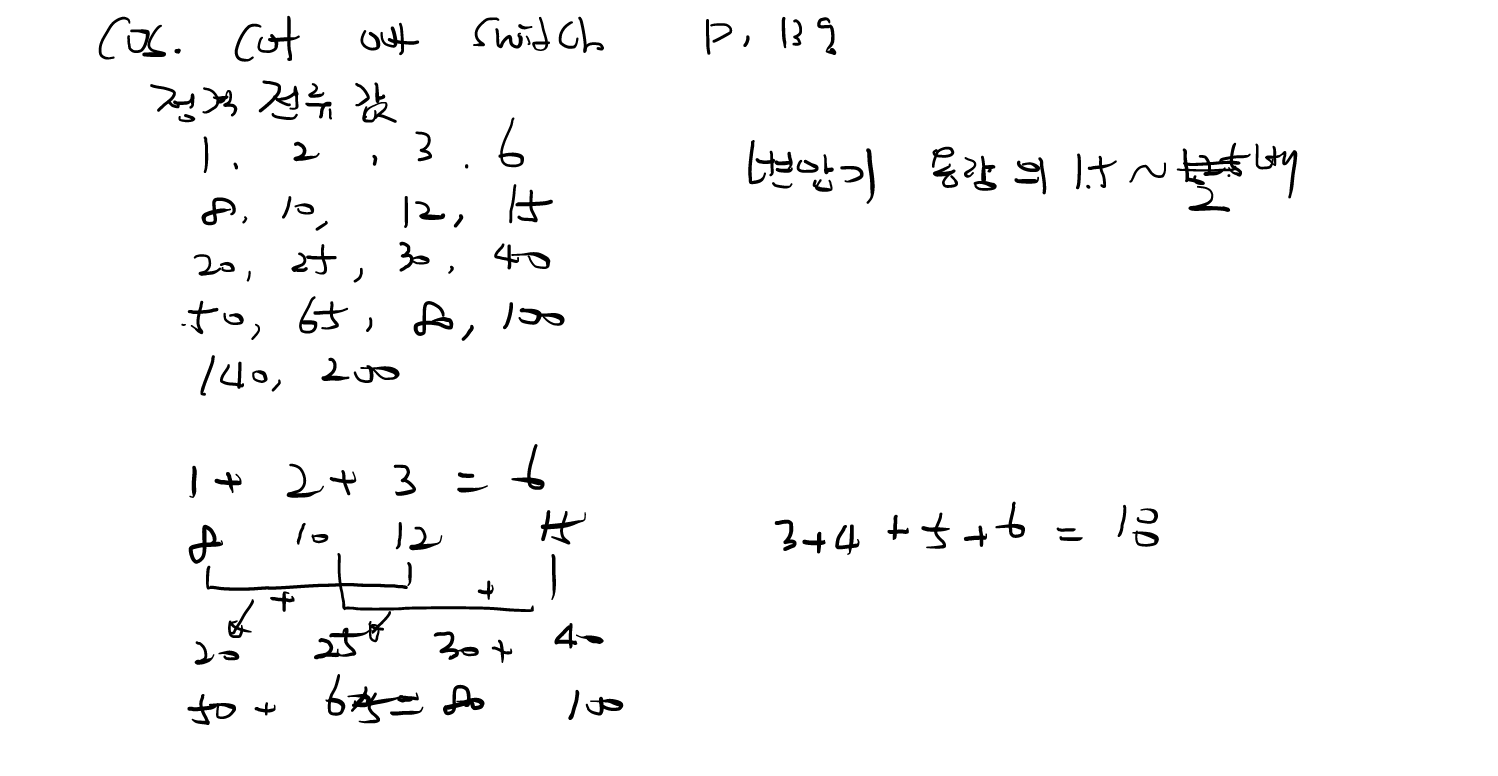 COS. Cut out switch P, 139
정격 전류 값
1. 2, 3. 6
8, 10, 12, 15
20, 25, 30, 40
50, 65, 80, 100
140, 200
변압기 용량의 1.5 ~ 2배
1 + 2 + 3 = 6
8 10 12 15
+ +
20 25 30 + 40
50 + 65 = 80 100
3+4+5+6 = 18